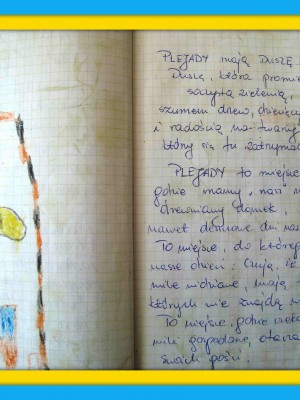 PLEJADY mają Duszę.
Duszę, która promie
soczystą zielenią,
szumem drzew, dziecięcy
i radością na twarzy
który się tu zatrzyma
PLEJADY to miejsce
gdzie mamy „nasz"
drewniany domek,
nawet deszczowe dni nas
To miejsce, do którego
nasze dzieci. Czują, że
mile widziane, mają
których nie znajdą n
To miejsce, gdzie czeka
mili gospodarze, otacza
swoich gości.